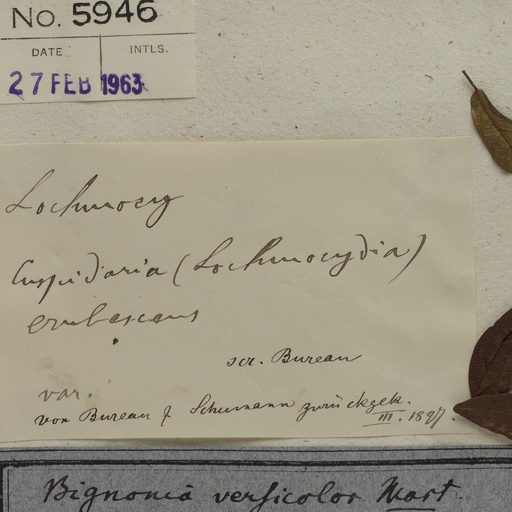 No. 5946
DATE INTLS.
27 FEB 1963
Lochmocy
Cuspidaria (Lochmocydia)
erubescens
scr. Bureau
var.
von Bureau & Schumann zurückgek.
III. 1897.
Bignonia versicolor Mart.